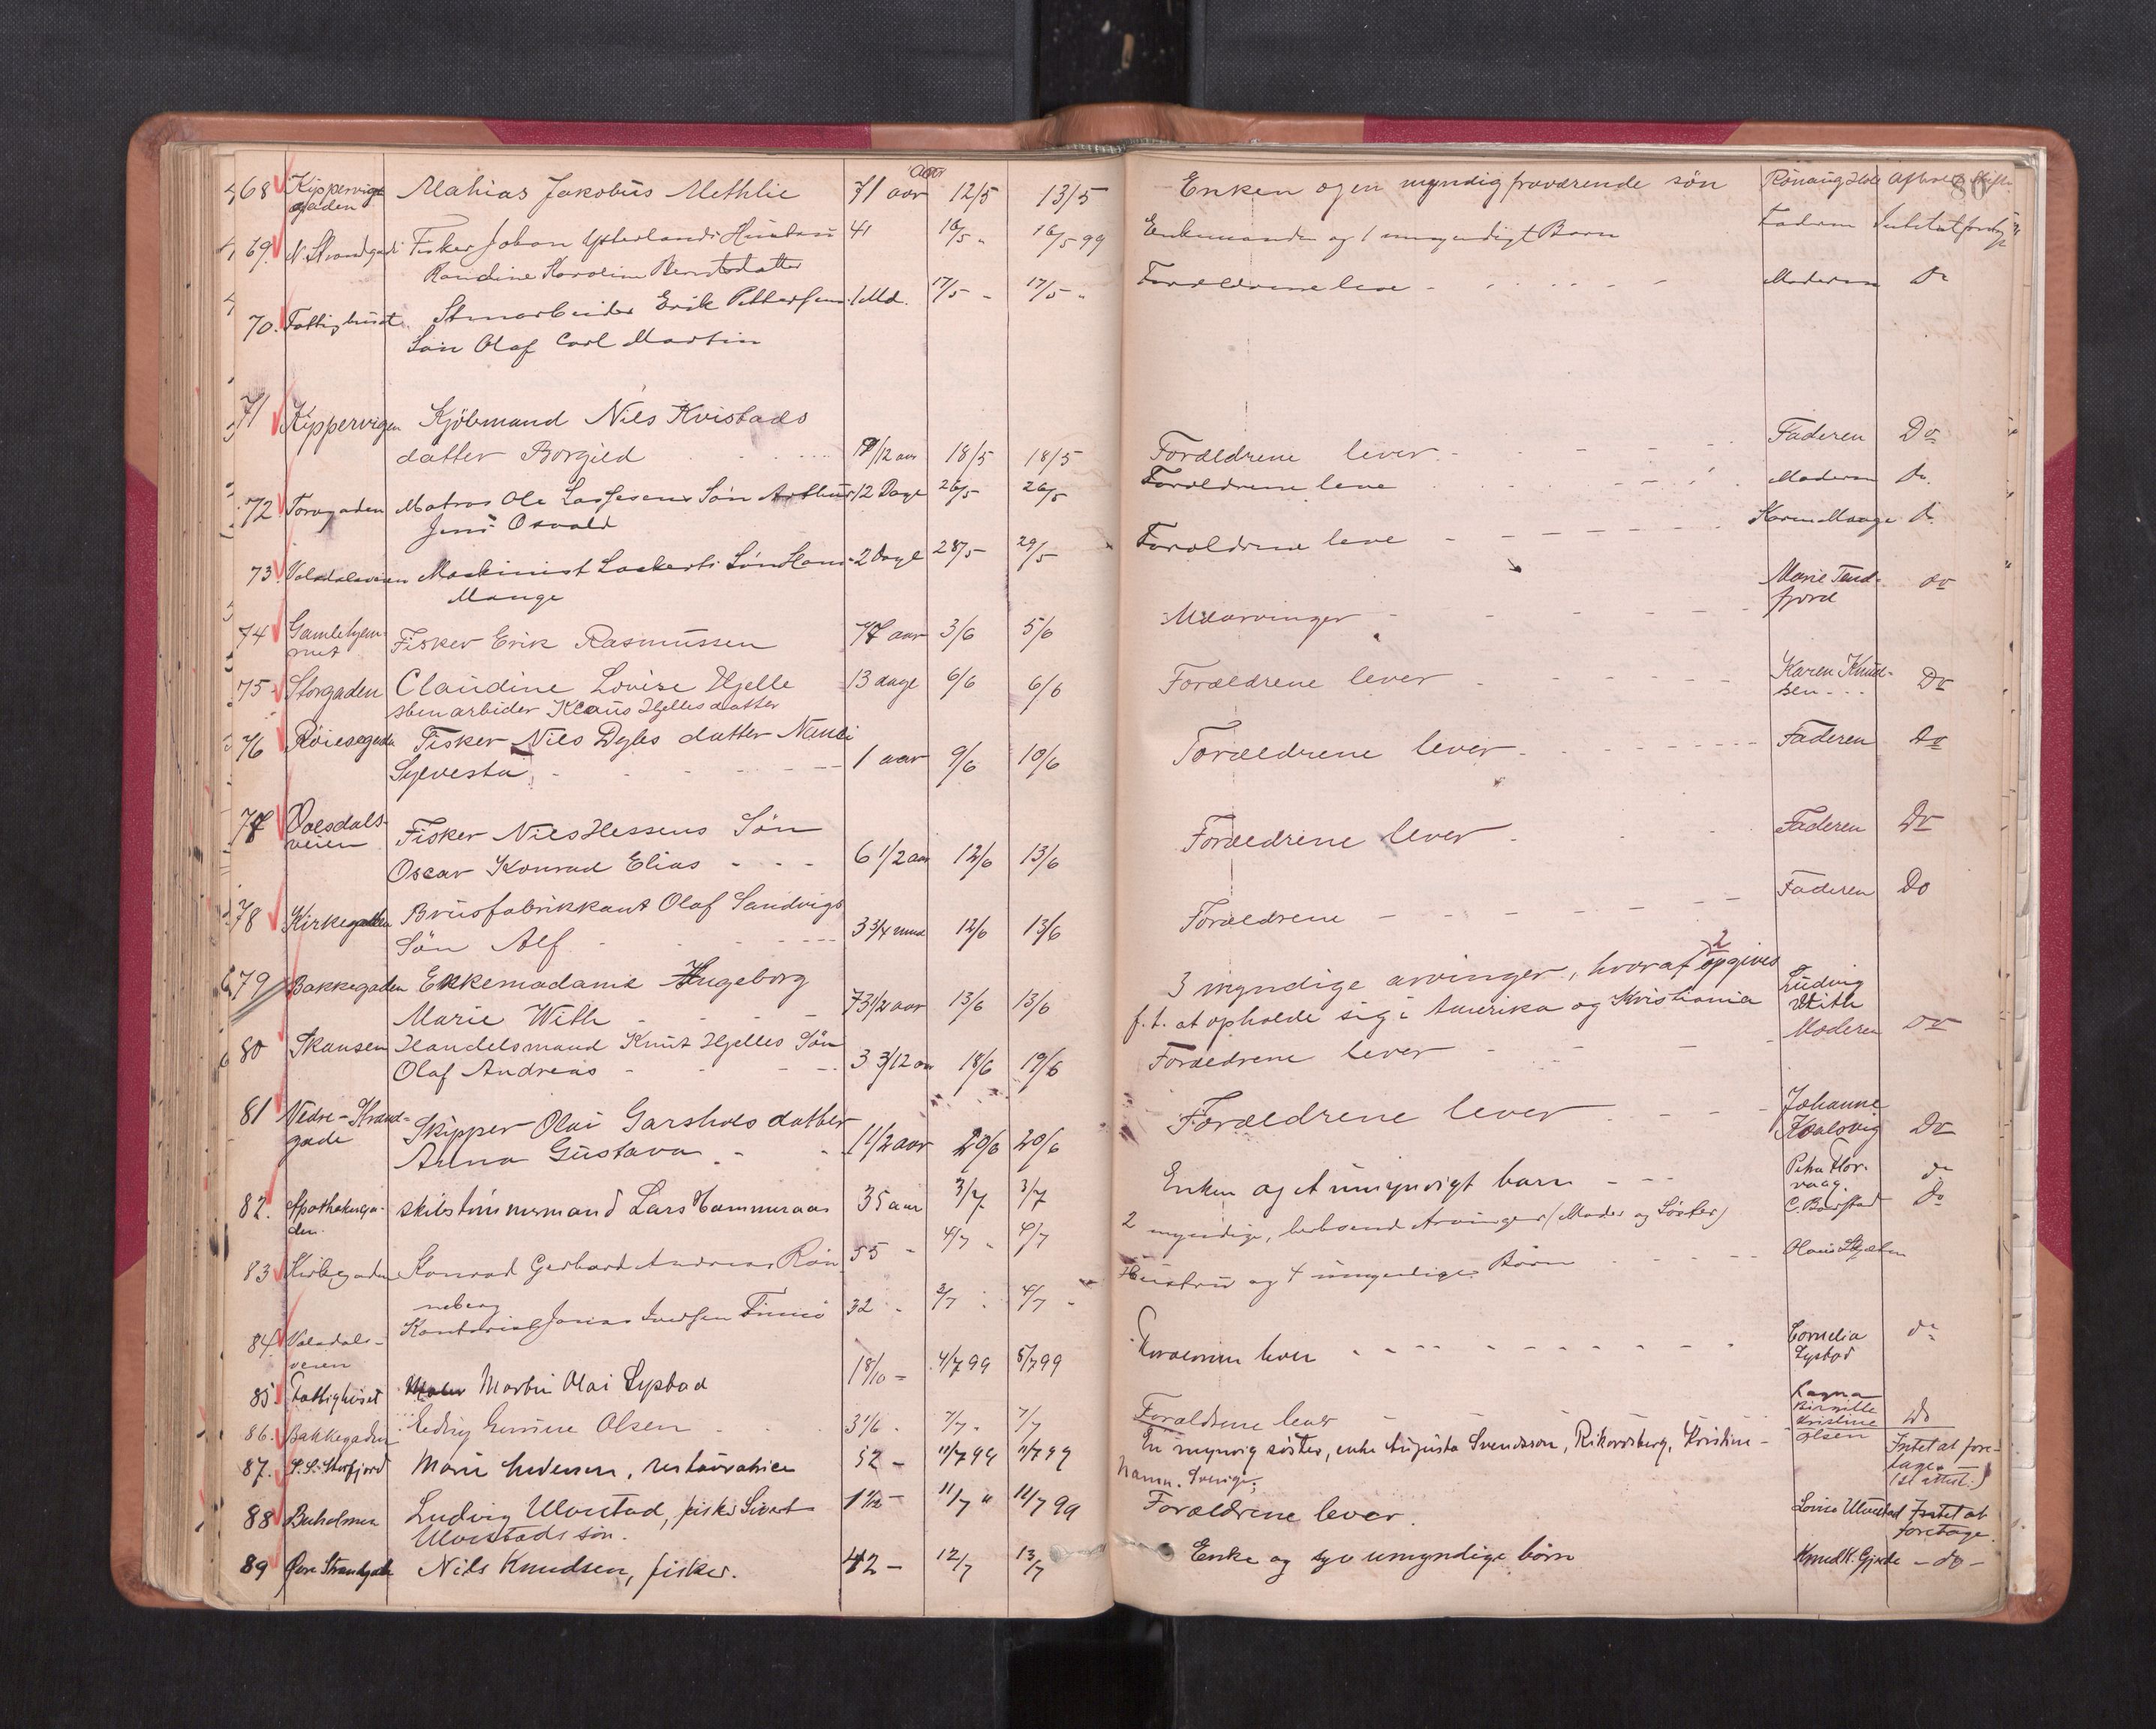 68 Kippervigs Mathias Jakobus Methlie 71 aar 12/5 13/5 Enken og en myndig fraværende søn
gaden
69. N. Strandgade Fisker Johan Ytterlands Hustru 41 16/5 " 16/5 99 Enkemanden og 1 umyndigt Barn Faderen
Randine Karoline Berntsdatter
70. Fattighuset Stenarbeider Erik Pettersens 1 Md. 17/5 - 17/5 " Forældrene leve Moderen Do
Søn Olaf Carl Martin
71 Kippervigen Kjøbmand Nils Kvistads
datter Borgild 9/12 aar 18/5 18/5 Forældrene lever Faderen Do
72 Torvgaden Matros Ole Lassesens Søn Arthur 12 Dage 26/5 26/5 Forældrene leve Moderen Do.
Jens Osvald
73. Volsdalsveien Maskinist Lockerts Søn Hans 2 Dage 28/5 - 29/5 Forældrene leve Karen Mauge Do.
Mauge
74 Gamlehjem- Fisker Erik Rasmussen 77 aar 3/6 5/6 Udarvinger Marie Tend- do
met fjord
75 Storgaden Claudine Lovise Hjelle 13 dage 6/6 6/6 Forældrene lever Karen Knud- Do
stenarbider Klaus Hjelles datter sen
76 Røiesegaden Fisker Nils Dybs datter Nanci
Sylvesta 1 aar 9/6 10/6 Forældrene lever Faderen Do
77 Volsdals- Fisker Nils Hessens Søn
veien Oscar Konrad Elias 6 1/2 aar 12/6 13/6 Forældrene lever Faderen Do
78 Kirkegaden Brusfabrikkant Olaf Sandvigs
Søn Alf 3 3/4 mnd 12/6 13/6 Forældrene Faderen Do
79 Bakkegaden Enkemadame Ingeborg 3 myndige arvinger, hvoraf 2 opgives Ludvig
Marie With 73 1/2 aar 13/6 13/6 f. t. at opholde sig i Amerika og Kristiania With
80 Skansen Handelsmand Knut Hjelles Søn Moderen Do
Olaf Andreas 3 3/12 aar 18/6 19/6 Forældrene lever
81 Nedre-Strand- Skipper Olai Garshols datter Johanne
gade Anna Gustava 1 1/2 aar 20/6 20/6 Forældrene lever Kvalsvig Do
82. Apothekerga- skibstømmermand Lars Hammeraas 35 aar 3/7 3/7 Enken og et umyndigt barn Petra Flor- do
den. vaag.
83 Kirkegaden Konrad Gerhard Andreas Røn 55 - 4/7 - 4/7 2 myndige, Arvinger (Moder og Søster) do
neberg
84. Volsdals- Kontorist Jonas Iversen Finnø 32 - 2/7 4/7 - Hustru og 4 umyndige Børn
veien
85. Fattighuset Martin Olai Systad 18/10 - 4/7 99 5/7 99 Forældrene lever Cornelia do
Systad
86. Bakkegaden Gunine Olsen 3 1/6 - 7/7 - 7/7 Forældrene lever Ragna Do
Birgitte
Kristine
Olsen
87. S.S. Storfjord Marie Svensson, restauratrice 52 - 11/7 99 11/7 99 En myndig søster, enke Augusta Svendsson, Rikardsberg, Kristine- Intet at fore-
hamn. Sverige; tage.
88 Buholmen Ludvig Ulvestad, fisker Sivert 1 1/12 - 11/7 " 12/7 99 Forældrene lever. Lovise Ulvestad Intet at
Ulvestads søn. foretage.
89 Øvre Strandgade Nils Knudsen, fisker. 42 - 12/7 13/7 Enke og syv umyndige børn Knud K. Gjerde - do -